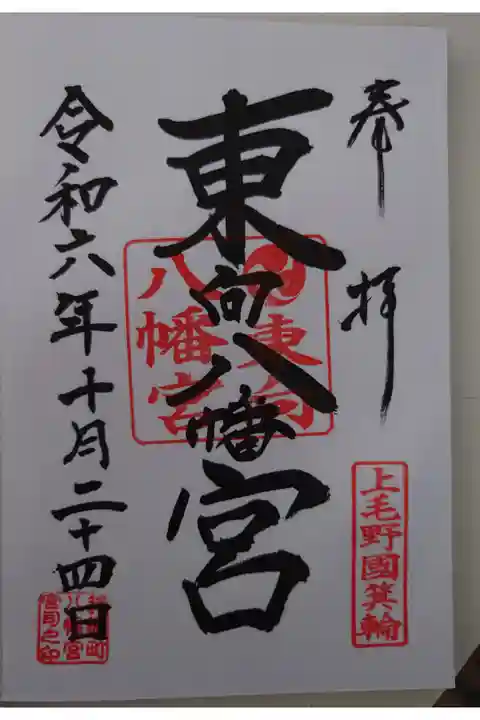 奉拝
上毛野國箕輪
東向八幡宮
東向八幡宮
令和六年十月二十四日
宮司之印